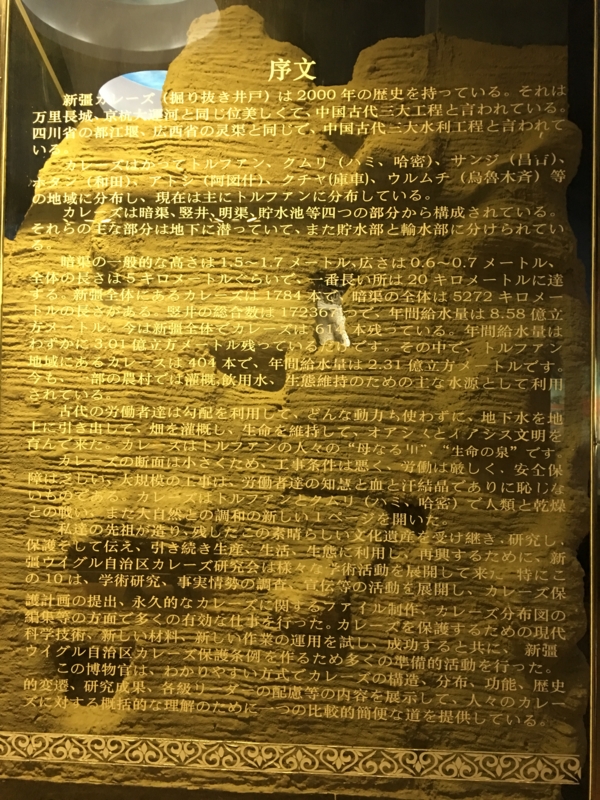 序文
新疆カレーズ（掘り抜き井戸）は2000年の歴史を持っている。それは
万里長城、京杭大運河と同じ位美しくて、中国古代三大工程と言われている。
四川省の都江堰、広西省の灵渠と同じで、中国古代三大水利工程と言われて
いる。
カレーズはかつてトルファン、グムリ（ハミ、哈密）、サンジ（昌吉）、
ホタン（和田）、アトシ（阿図什）、クチャ(庫車)、ウルムチ（烏魯木斉）等
の地域に分布し、現在は主にトルファンに分布している。
カレーズは暗渠、竪井、明渠、貯水池等四つの部分から構成されている。
それらの主な部分は地下に潜っていて、また貯水部と輸水部に分けられてい
る。
暗渠の一般的な高さは1.5～1.7メートル、広さは0.6～0.7メートル、
全体の長さは5キロメートルぐらいで、一番長い所は20キロメートルに達
する。新疆全体にあるカレーズは1784本で、暗渠の全体は5272キロメー
トルの長さがある。竪井の総合数は172367つで、年間給水量は8.58億立
方メートル。今は新疆全体でカレーズは61 本残っている。年間給水量は
わずかに3.01億立方メートル残っているだけです。その中で、トルファン
地域にあるカレーズは404本で、年間給水量は2.31億立方メートルです。
今も、一部の農村では灌概、飲用水、生態維持のための主な水源として利用
されている。
古代の労働者達は勾配を利用して、どんな動力も使わずに、地下水を地
上に引き出して、畑を灌概し、生命を維持して、オアシスとオアシス文明を
育んで来た。カレーズはトルファンの人々の“母なる川”、“生命の泉”です
カレーズの断面は小さくため、工事条件は悪く、労働は厳しく、安全保
障は乏しい、大規模の工事は、労働者達の知慧と血と汗結晶でありに恥じな
いものである。カレーズはトルファンとグムリ（ハミ、哈密）で人類と乾燥
との戦い、また大自然との調和の新しい1ページを開いた。
私達の先祖が造り、残したこの素晴らしい文化遺産を受け継ぎ、研究し、
保護そして伝え、引き続き生産、生活、生態に利用し、再興するために、新
疆ウイグル自治区カレーズ研究会は様々な学術活動を展開して来た。特にこ
の10は、学術研究、事実情勢の調査、宣伝等の活動を展開し、カレーズ保
護計画の提出、永久的なカレーズに関するファイル制作、カレーズ分布図の
編集等の方面で多くの有効な仕事を行った。カレーズを保護するための現代
科学技術、新しい材料、新しい作業の運用を試し、成功すると共に、新疆
ウイグル自治区カレーズ保護条例を作るため多くの準備的活動を行った。
この博物官は、わかりやすい方式でカレーズの構造、分布、功能、歴史
的変遷、研究成果、各級リーダーの配慮等の内容を展示して、人々のカレー
ズに対する概括的な理解のために一つの比較的簡便な道を提供している。